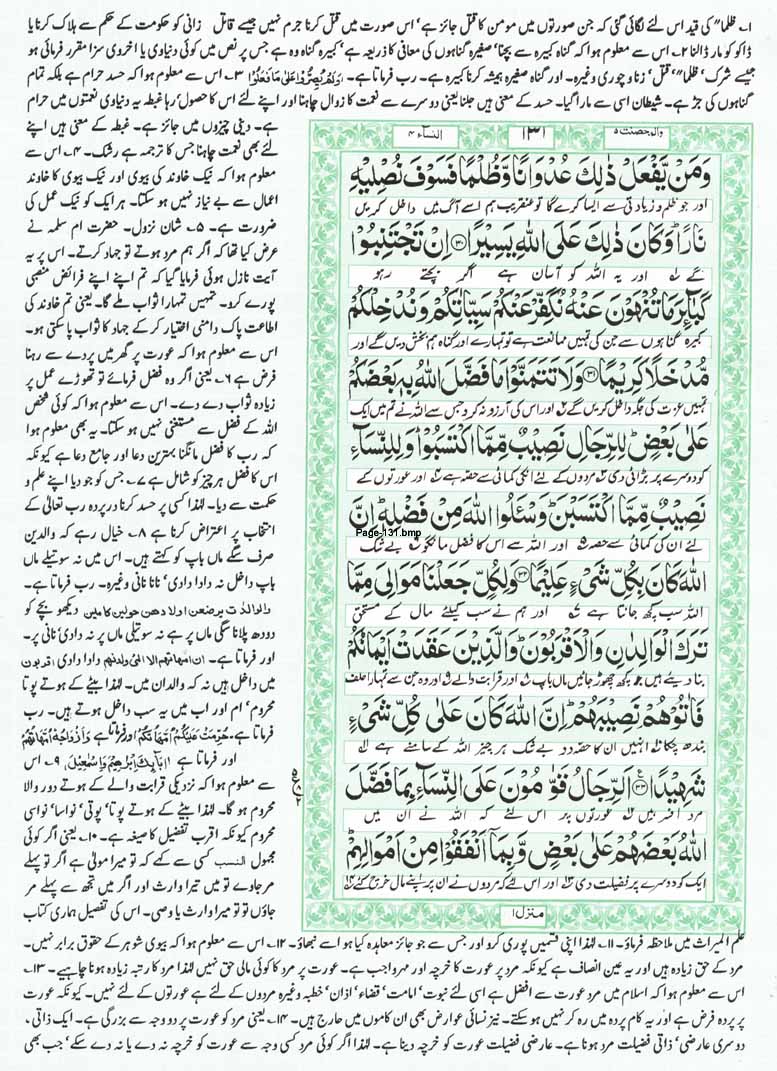 ۱۔ ظلماً کی قید اس لئے لگائی گئی کہ جن صورتوں میں مومن کا قتل جائز ہے' اس صورت میں قتل کرنا جرم نہیں جیسے قاتل زانی کو حکومت کے حکم سے ہلاک کرنا یا
ڈاکو کو مار ڈالنا ۲۔ اس سے معلوم ہوا کہ گناہ کبیرہ سے بچنا' صغیرہ گناہوں کی معافی کا ذریعہ ہے' کبیرہ گناہ وہ ہے جس پر نص میں کوئی دنیاوی یا اخروی سزا مقرر فرمائی ہو
جیسے شرک' ظلماً' قتل' زنا و چوری وغیرہ۔ اور گناہ صغیرہ ہمیشہ کرنا کبیرہ ہے۔ رب فرماتا ہے۔ ۳۔ اس سے معلوم ہوا کہ حسد حرام ہے بلکہ تمام
گناہوں کی جڑ ہے۔ شیطان اسی سے مارا گیا۔ حسد کے معنی ہیں جلنا یعنی دوسرے سے نعمت کا زوال چاہنا اور اپنے لئے اس کا حصول' رہا غبطہ یہ دنیاوی نعمتوں میں حرام
والمحصنت ۵
۱۳۱
النسآء ۴
وَمَنْ يَّفْعَلْ ذٰلِكَ عُدْوَانًا وَّظُلْمًا فَسَوْفَ نُصْلِيْهِ
اور جو ظلم و زیادتی سے ایسا کرے گا تو عنقریب ہم اسے آگ میں داخل کریں
نَارًا وَكَانَ ذٰلِكَ عَلَى اللّٰهِ يَسِيْرًا ۝۳۰ اِنْ تَجْتَنِبُوْا
گے اور یہ اللہ کو آسان ہے اگر بچتے رہو
كَبَآئِرَ مَا تُنْهَوْنَ عَنْهُ نُكَفِّرْ عَنْكُمْ سَيِّاٰتِكُمْ وَنُدْخِلْكُمْ
کبیرہ گناہوں سے جن کی تمہیں ممانعت ہے تو تمہارے اور گناہ ہم بخش دیں گے اور
مُّدْخَلًا كَرِيْمًا ۝۳۱ وَلَا تَتَمَنَّوْا مَا فَضَّلَ اللّٰهُ بِهٖ بَعْضَكُمْ
تمہیں عزت کی جگہ داخل کریں گے اور اس کی آرزو نہ کرو جس سے اللہ نے تم میں ایک
عَلٰى بَعْضٍ لِلرِّجَالِ نَصِيْبٌ مِّمَّا اكْتَسَبُوْا وَلِلنِّسَآءِ
کو دوسرے پر بڑائی دی مردوں کے لئے انکی کمائی سے حصہ ہے اور عورتوں کے
نَصِيْبٌ مِّمَّا اكْتَسَبْنَ وَسْـَٔلُوا اللّٰهَ مِنْ فَضْلِهٖ اِنَّ
لئے ان کی کمائی سے حصہ اور اللہ سے اس کا فضل مانگو بے شک
Page-131.bmp
اللّٰهَ كَانَ بِكُلِّ شَيْءٍ عَلِيْمًا ۝۳۲ وَلِكُلٍّ جَعَلْنَا مَوَالِيَ مِمَّا
اللہ سب کچھ جانتا ہے اور ہم نے سب کیلئے مال کے مستحق
تَرَكَ الْوَالِدٰنِ وَالْاَقْرَبُوْنَ وَالَّذِيْنَ عَقَدَتْ اَيْمَانُكُمْ
بنا دیئے ہیں جو کچھ چھوڑ جائیں ماں باپ اور قرابت والے اور وہ جن سے تمہارا حلف
فَاٰتُوْهُمْ نَصِيْبَهُمْ اِنَّ اللّٰهَ كَانَ عَلٰى كُلِّ شَيْءٍ
بندھ چکا انہیں ان کا حصہ دو بے شک ہر چیز اللہ کے سامنے ہے
شَهِيْدًا ۝۳۳ اَلرِّجَالُ قَوّٰمُوْنَ عَلَى النِّسَآءِ بِمَا فَضَّلَ
مرد افسر ہیں عورتوں پر اس لئے کہ اللہ نے ان میں
اللّٰهُ بَعْضَهُمْ عَلٰى بَعْضٍ وَّبِمَآ اَنْفَقُوْا مِنْ اَمْوَالِهِمْ
ایک کو دوسرے پر فضیلت دی اور اس لئے کہ مردوں نے ان پر اپنے مال خرچ کئے
منزل ۱
ہے۔ دینی چیزوں میں جائز ہے۔ غبطہ کے معنی ہیں اپنے
لئے بھی نعمت چاہنا جس کا ترجمہ ہے رشک۔ ۴۔ اس سے
معلوم ہوا کہ نیک خاوند کی بیوی اور نیک بیوی کا خاوند
اعمال سے بے نیاز نہیں ہو سکتا۔ ہر ایک کو نیک عمل کی
ضرورت ہے۔ ۵۔ شان نزول۔ حضرت ام سلمہ نے
عرض کیا تھا کہ اگر ہم مرد ہوتے تو جہاد کرتے۔ اس پر یہ
آیت نازل ہوئی فرمایا گیا کہ تم اپنے اپنے فرائض منصبی
پورے کرو۔ تمہیں تمہارا ثواب ملے گا۔ یعنی تم خاوند کی
اطاعت پاک دامنی اختیار کر کے جہاد کا ثواب پا سکتی ہو۔
اس سے معلوم ہوا کہ عورت پر گھر میں پردے سے رہنا
فرض ہے ۶۔ یعنی اگر وہ فضل فرمائے تو تھوڑے عمل پر
زیادہ ثواب دے دے۔ اس سے معلوم ہوا کہ کوئی شخص
اللہ کے فضل سے مستغنی نہیں ہو سکتا۔ یہ بھی معلوم ہوا
کہ رب کا فضل مانگنا بہترین دعا اور جامع دعا ہے کیونکہ
اس کا فضل ہر چیز کو شامل ہے ۷۔ جس کو جو دیا اپنے علم و
حکمت سے دیا۔ لہٰذا کسی پر حسد کرنا در پردہ رب تعالیٰ کے
انتخاب پر اعتراض کرنا ہے ۸۔ خیال رہے کہ والدین
صرف سگے ماں باپ کو کہتے ہیں۔ اس میں نہ سوتیلے ماں
باپ داخل نہ دادا دادی' نانا نانی وغیرہ۔ رب فرماتا ہے۔
والوالدٰت یرضعن اولادھن حولین کاملین دیکھو بچے کو
دودھ پلانا سگی ماں پر ہے نہ سوتیلی ماں پر نہ دادی' نانی پر۔
اور فرماتا ہے۔ ان امھاتھم الا الّٰئی ولدنھم دادا دادی اقربون
میں داخل ہیں نہ کہ والدان میں۔ لہٰذا بیٹے کے ہوتے پوتا
محروم' ام اور اب میں یہ سب داخل ہوتے ہیں۔ رب
فرماتا ہے۔ حُرِّمَتْ عَلَيْكُمْ اُمَّهٰتُكُمْ اور فرماتا ہے وَاَزْوَاجُهٗ اُمَّهٰتُهُمْ
اور فرماتا ہے اٰبَآئِكَ اِبْرٰهِيْمَ وَاِسْمٰعِيْلَ ۹۔ اس
سے معلوم ہوا کہ نزدیکی قرابت والے کے ہوتے دور والا
محروم ہو گا۔ لہٰذا بیٹے کے ہوتے پوتا' پوتی' نواسا' نواسی
محروم کیونکہ اقرب تفضیل کا صیغہ ہے۔ ۱۰۔ یعنی اگر کوئی
مجہول النسب کسی سے کہے کہ تو میرا مولیٰ ہے اگر تو پہلے
مر جاوے تو میں تیرا وارث اور اگر میں تجھ سے پہلے مر
جاؤں تو تو میرا وارث یا وصی۔ اس کی تفصیل ہماری کتاب
علم المیراث میں ملاحظہ فرماؤ۔ ۱۱۔ لہٰذا اپنی قسمیں پوری کرو اور جس سے جو جائز معاہدہ کیا ہو اسے نبھاؤ۔ ۱۲۔ اس سے معلوم ہوا کہ بیوی شوہر کے حقوق برابر نہیں۔
مرد کے حق زیادہ ہیں اور یہ عین انصاف ہے کیونکہ مرد پر عورت کا خرچہ اور مہر واجب ہے۔ عورت پر مرد کا کوئی مالی حق نہیں لہٰذا مرد کا رتبہ زیادہ ہونا چاہیے۔ ۱۳۔
اس سے معلوم ہوا کہ اسلام میں مرد عورت سے افضل ہے اسی لئے نبوت' امامت' قضاء' اذان' خطبہ وغیرہ مردوں کے لئے ہے عورتوں کے لئے نہیں۔ کیونکہ عورت
پر پردہ فرض ہے اور یہ کام پردہ میں رہ کر نہیں ہو سکتے۔ نیز نسائی عوارض بھی ان کاموں میں حارج ہیں۔ ۱۴۔ یعنی مرد کو عورت پر دو وجہ سے بزرگی ہے۔ ایک ذاتی'
دوسری عارضی' ذاتی فضیلت مرد ہونا ہے۔ عارضی فضیلت عورت کو خرچہ دینا ہے۔ لہٰذا اگر کوئی مرد کسی وجہ سے عورت کو خرچہ نہ دے یا نہ دے سکے' جب بھی